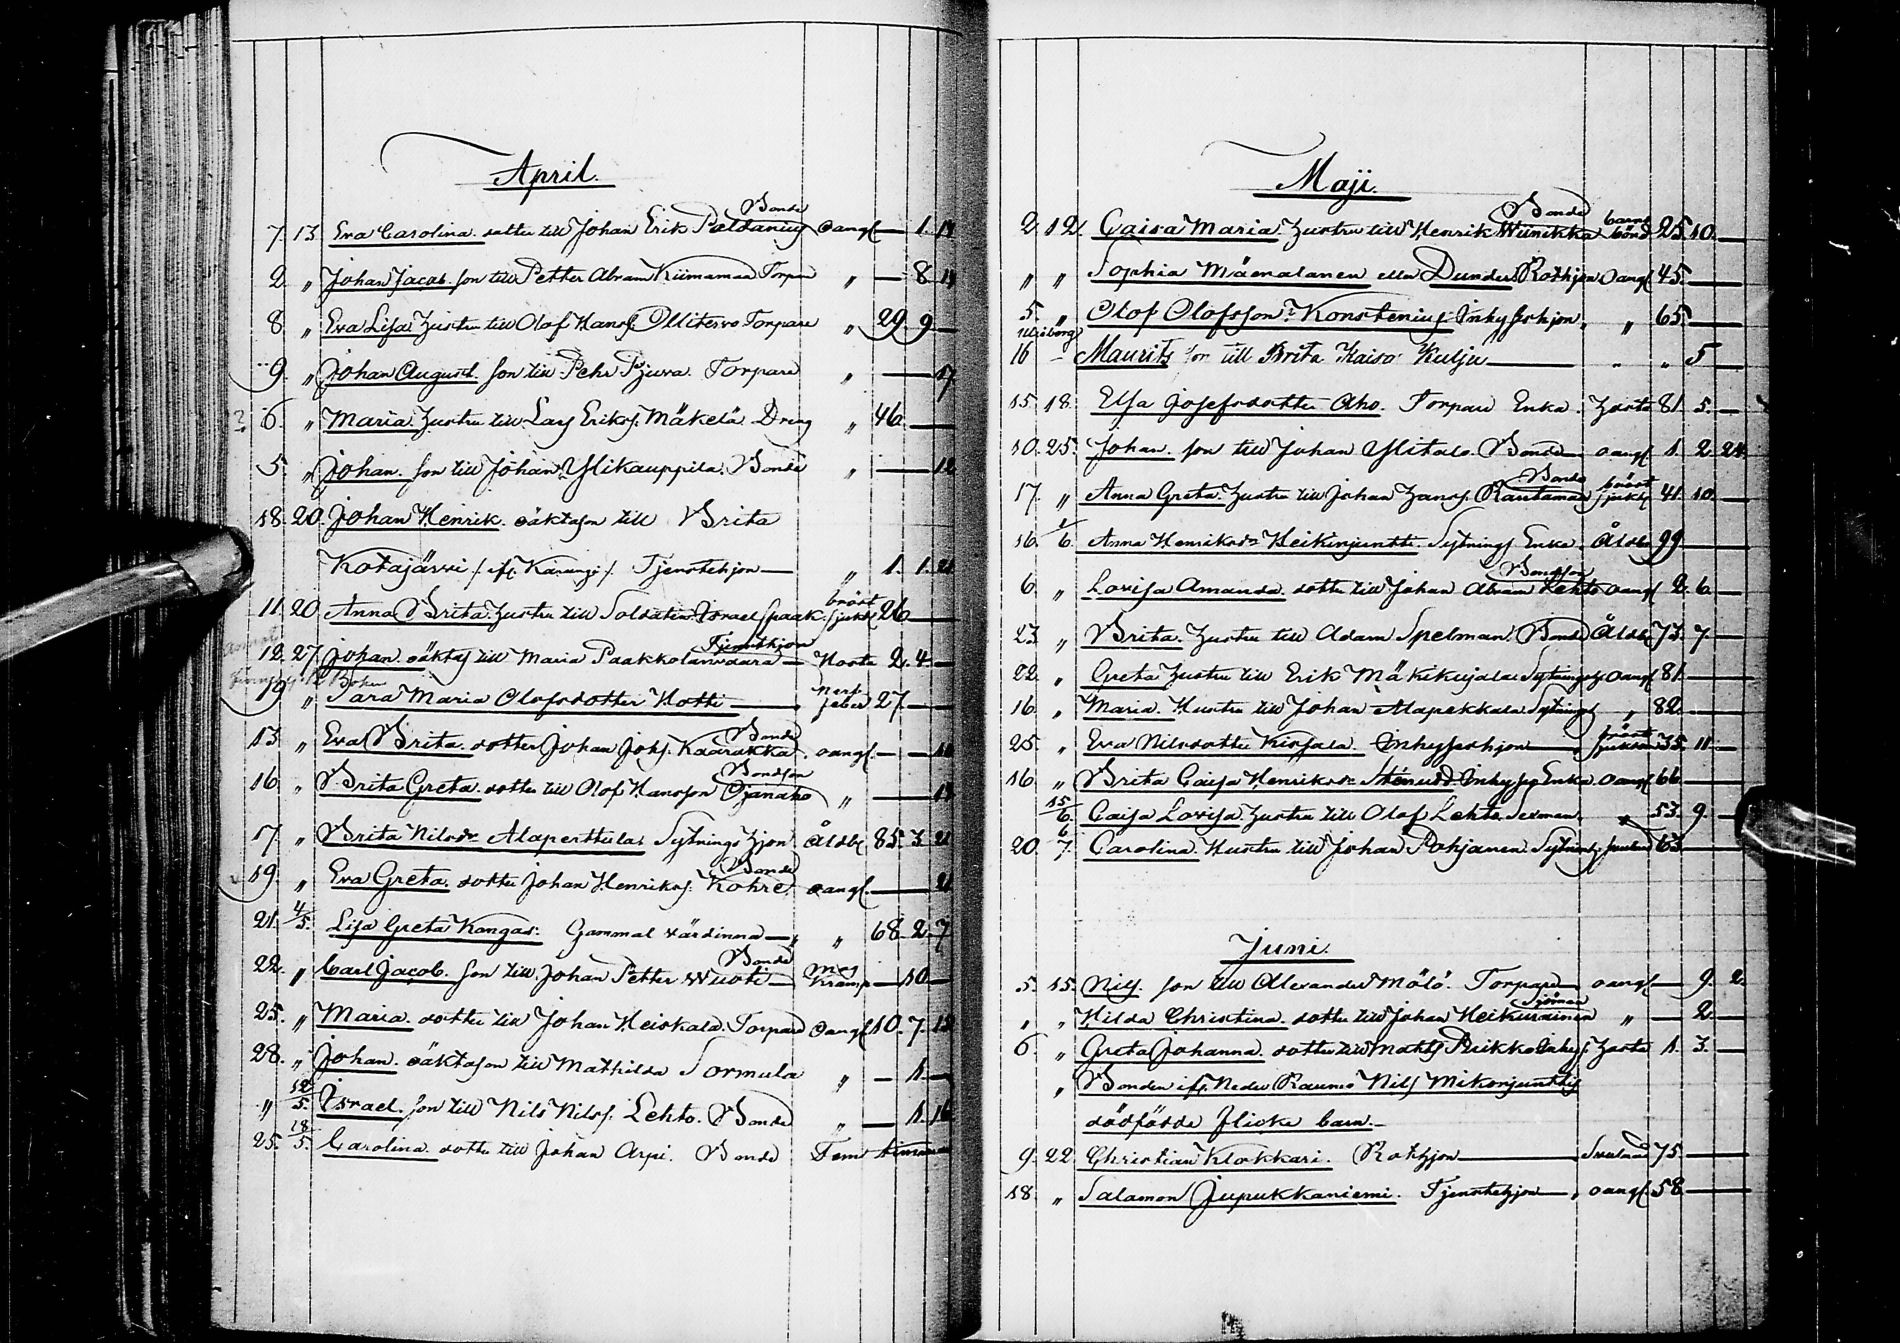 April.
Bonde
7. 13. Eva Carolina. dotter till Johan Erik Paldanius oangf. — 1. 14
2. „ Johan Jacob. son till Petter Abram Kiimamaa Torpare „ — 8. 14
8. „ Eva Lisa Hustru till Olof Hansf. Ollitervo Torpare „ 29 9 —
9. „ Johan August. son till Pehr Pjuva. Torpare „ — 17.
6. „ Maria. Hustru till Lars Eriksf. Mäkelä Dreng „ 46. —
5. „ Johan. son till Johan Ylikauppila. Bonde „ — 12
18. 20. Johan Henrik. oäktason till Brita
Kotajärvi /: ifr. Karungi :/. Tjenstehjon — „ 1. 1. 21
bröst
11. 20. Anna Brita. Hustru till Soldaten Israel Spaak. sjukd. 26 —
Tjensthjon
12. 27. Johan. oäktas till Maria Paakkolanvaara — Hosta 2. 4. —
19 „ Sara Maria Olofsdotter Hotti — nerf feber 27. —
Bonde
13. „ Eva Brita. dotter Johan Johs. Kaarakka. oangf. —
Bondson
16. „ Brita Greta. dotter till Olof Hansson Ojanaho „ — 14
17. „ Brita Nilsdr Alaperttula. Sytnings Hjon. Åldd. 85. 3. 21
Bonde
19. „ Eva Greta. dotter Johan Henriksf. Kohre. oangf. — 21
21. 4/5. Lisa Greta Kangas. Gammal värdinna — „ „ 68. 2. 7
Bonde
22. „ Carl Jacob. son till Johan Petter Wuoti — Mag Kramp — 10 —
25. „ Maria. dotter till Johan Heiskala. Torpare oangf. 10. 7. 12
28. „ Johan. oäktason till Mathilda Sormula „ — 1. —
„ 12/5. Israel. son till Nils Nilsf. Lehto. Bonde „ — 1. 16
25. 18/5. Carolina. dotter till Johan Arpi. Bonde Fem timmar
Maji.
Bonde barns
2. 12. Caisa Maria. Hustru till Henrik Wiinikka börd 25. 10. —
„ „ Sophia Mäenalanen eller Dunder. Rothjon oangf. 45. —
5. „ Olof Olofsson Konstenius Inhyseshjon. „ 65. —
Uleåborg
16 — Maurits son till Brita Kaisa Kulju — „ „ 5
15. 18. Elsa Josefsdotter Aho. Torpare Enka. Hosta 81. 5. —
10. 25. Johan. son till Johan Ylitalo. Bonde — oangf. 1. 2. 24
Bonde bröst
17. „ Anna Greta. Hustru till Johan Hansf. Rautamaa sjukd. 41. 10. —
16. 1/6. Anna Henriksdr Heikinjuntti. Sytnings Enka. Åldd. 99 —
Bondson
6. „ Lovisa Amanda. dotter till Johan Abram Lehto oangf. 2. 6. —
23. „ Brita. Hustru till Adam Spelman. Bonde Åldd. 73. 7 —
22. „ Greta Hustru till Erik Mäkikujala. Sytningsh. oangf. 81. —
16. „ Maria. Hustru till Johan Alapekkala. Sytningsh „ 82. —
bröst
25. „ Eva Nilsdotter Kirjala. Inhyseshjon — sjukdom 35. 11. —
16 „ Brita Caisa Henriksdr Stenudd Inhyses Enka. oangf. 66. —
15/6. Caisa Lovisa Hustru till Olof Lehto. Sexman. „ 53. 9. —
20. 6/7. Carolina. Hustru till Johan Pohjanen. Sytningh. 63 —
Juni.
5. 15. Nils. son till Alexander Mölö. Torpare — oangf. — 9. 2.
Sjöman
„ „ Hilda Christina. dotter till Johan Heikurainen „ — 2. —
6. „ Greta Johanna. dotter till Matts Peikko Inhys. Hosta 1. 3. —
„ Bonden ifr. Neder Raumo Nils Mikonjunttis
dödfödde flicke barn. —
9. 22. Christian Klokkari. Rothjon — Svulnad 75. —
18. „ Salamon Jupukkaniemi. Tjenstehjon — oangf. 58. —